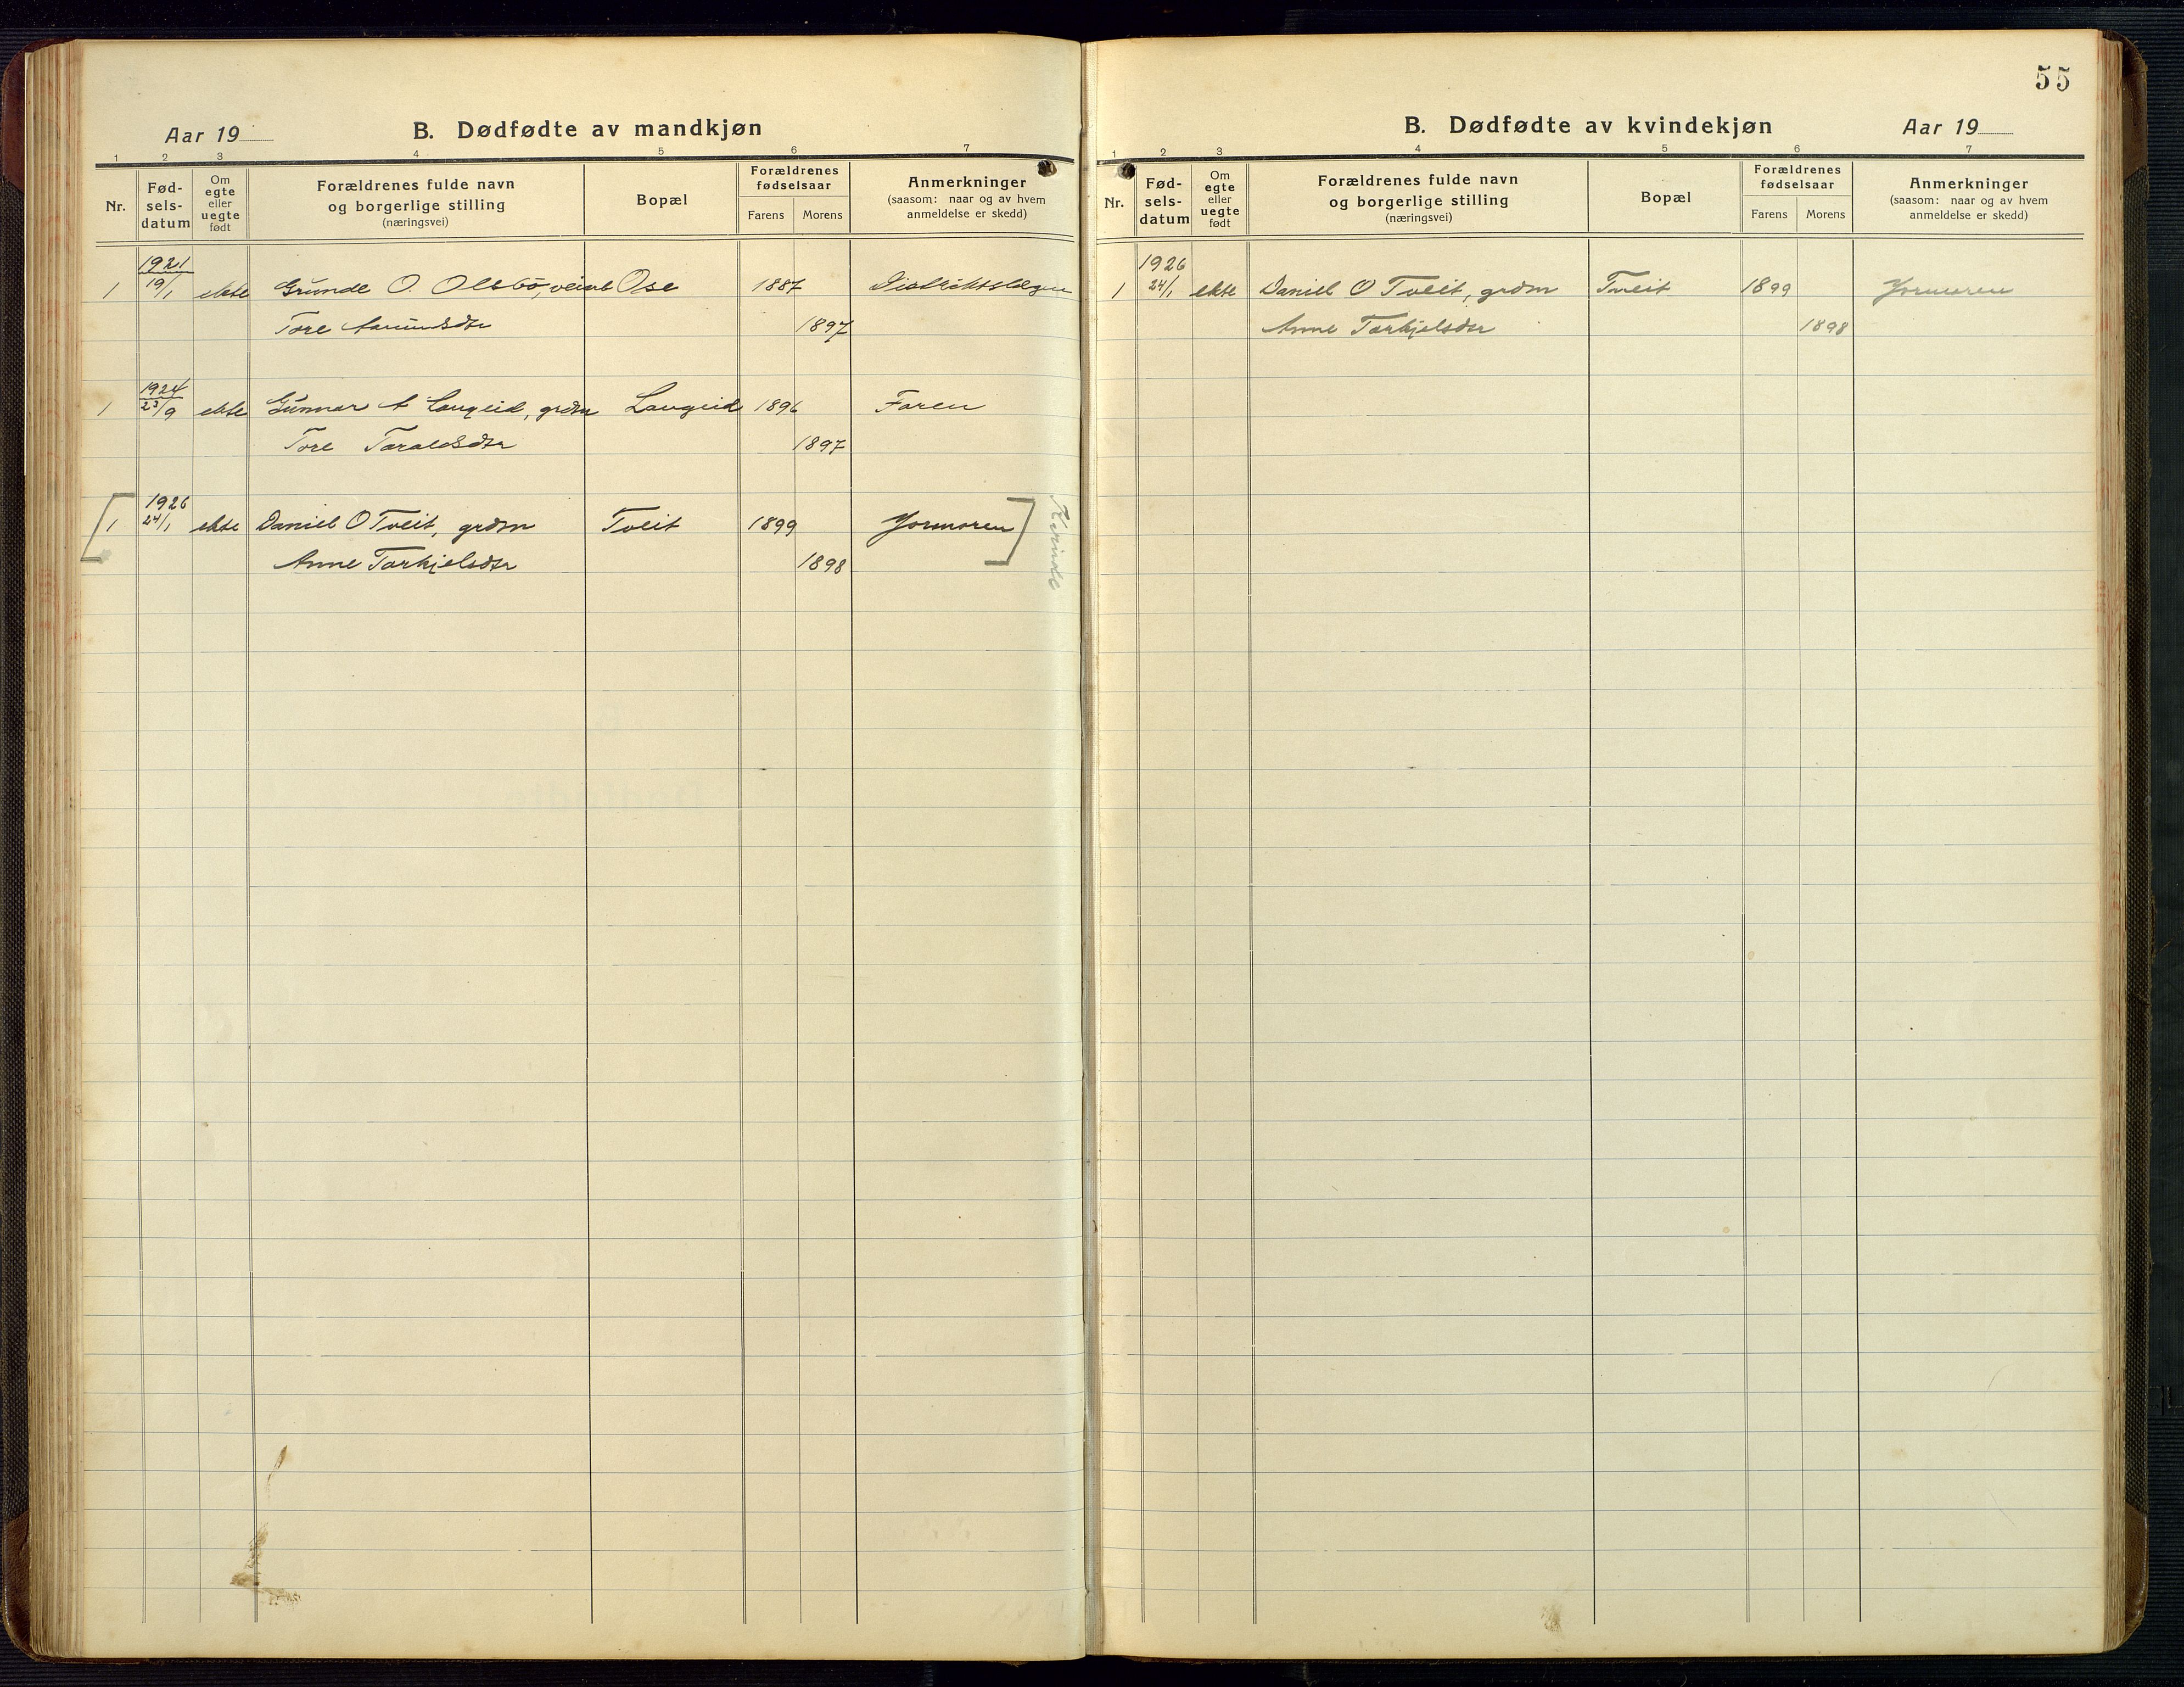 Aar 19
B. Dødfødte av mandkjøn
1 2 3 4 5 6 7
Nr.
Fød-
sels-
datum
Om
egte
eller
uegte
født
Forældrenes fulde navn
og borgerlige stilling
(næringsvei)
Bopæl
Forældrenes
fødselsaar
Farens Morens
Anmerkninger
(saasom: naar og av hvem
anmeldelse er skedd)
1921
1 19/1 ekte Grunde O. Olsbö, Ose 1887 Distriktslægen
Tore Aamundsdtr 1897
1924
1 23/9 ekte Gunnar A Langeid, grdm Langeid 1896 Faren
Tore Taraldsdtr 1897
1926
[ 1 24/1 ekte Daniel O Tveit, grdm Tveit 1899 Jormoren ]
Anne Torkjelsdtr 1898
Kvinde
55
B. Dødfødte av kvindekjøn
Aar 19
1 2 3 4 5 6 7
Nr.
Fød-
sels-
datum
Om
egte
eller
uegte
født
Forældrenes fulde navn
og borgerlige stilling
(næringsvei)
Bopæl
Forældrenes
fødselsaar
Farens Morens
Anmerkninger
(saasom: naar og av hvem
anmeldelse er skedd)
1926
1 24/1 ekte Daniel O Tveit, grdm Tveit 1899 Jormoren
Anne Torkjelsdtr 1898